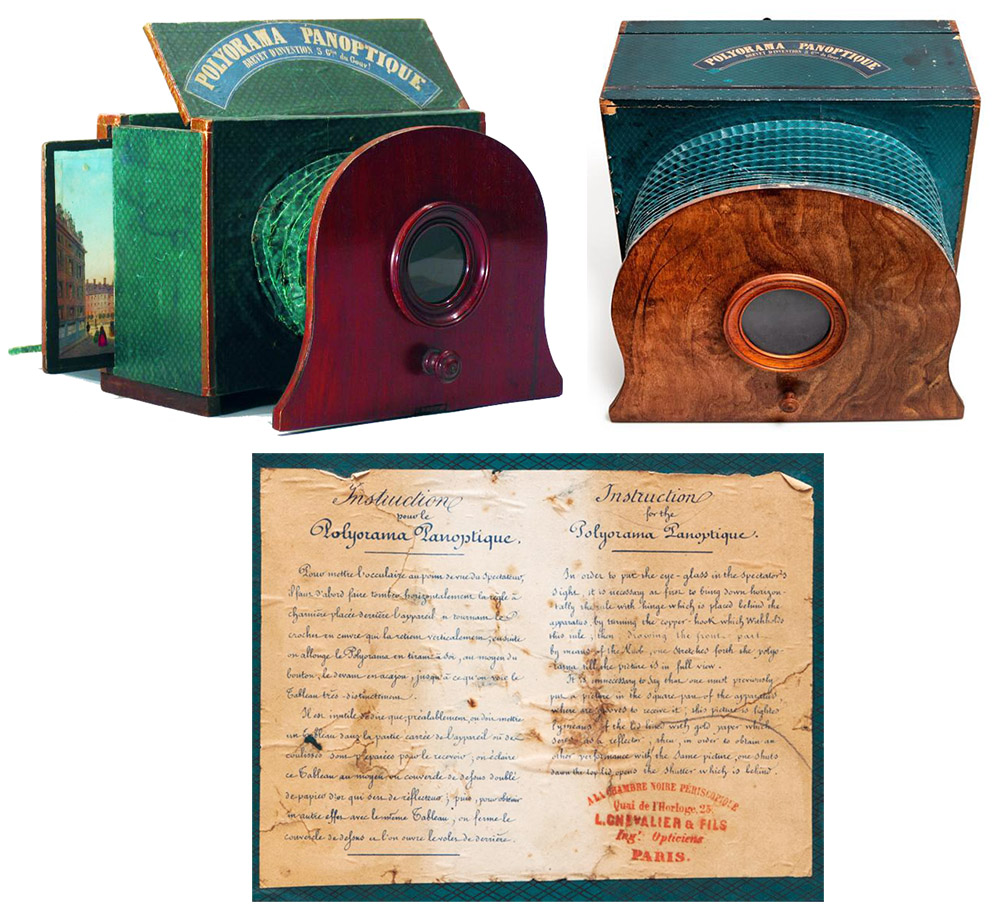 POLYORAMA PANOPTIQUE
BREVET D'INVENTION S.G.
du Gouv.t
POLYORAMA PANOPTIQUE
BREVET D'INVENTION S.G.
du Gouv.t
Instruction
pour le
Polyorama Panoptique.
Pour mettre l'occulaire au point de vue du Spectateur,
il faut d'abord faire tomber horizontalement la règle à
charnière placée derrière l'appareil, en tournant le
crochet en cuivre qui la retient verticalement; ensuite
on allonge le Polyorama en tirant à soi, au moyen du
bouton, le devant en acajou, jusqu'à ce qu'on voie le
Tableau très-distinctement.
Il est inutile de dire que préalablement, on doit mettre
un tableau dans la partie carrée de l'appareil où des
coulisses sont préparées pour le recevoir; on éclaire
ce Tableau au moyen du couvercle de dessus doublé
de papier d'or qui sert de réflecteur; puis, pour obtenir
un autre effet avec le même Tableau, on ferme le
couvercle de dessus et l'on ouvre le volet de derrière.
Instruction
for the
Polyorama Panoptique.
In order to put the eye-glass in the spectator's
sight, it is necessary at first to bring down horizon-
tally the rule with hinge which is placed behind the
apparatus, by turning the copper-hook which withholds
this rule; then drawing the front-part
by means of the Knob, one stretches forth the polyo-
rama till the picture is in full view.
It is unnecessary to say that one must previously
put a picture in the square part of the apparatus
where are grooves to receive it; this picture is lighted
by means of the lid lined with gold paper which
serves as a reflector; then, in order to obtain an
other performance with the same picture, one shuts
down the top lid, opens the shutter which is behind.
A LA CHAMBRE NOIRE PÉRISCOPIQUE
Quai de l'Horloge, 25.
L. CHEVALIER & FILS
Ing.rs Opticiens
PARIS.